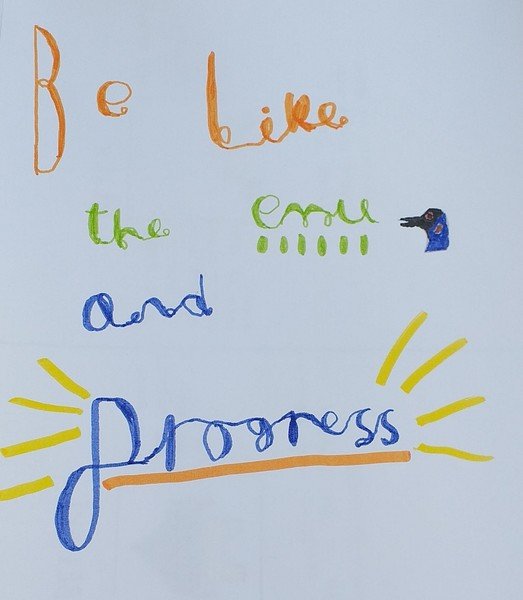 Be Like
the emu
and
progress